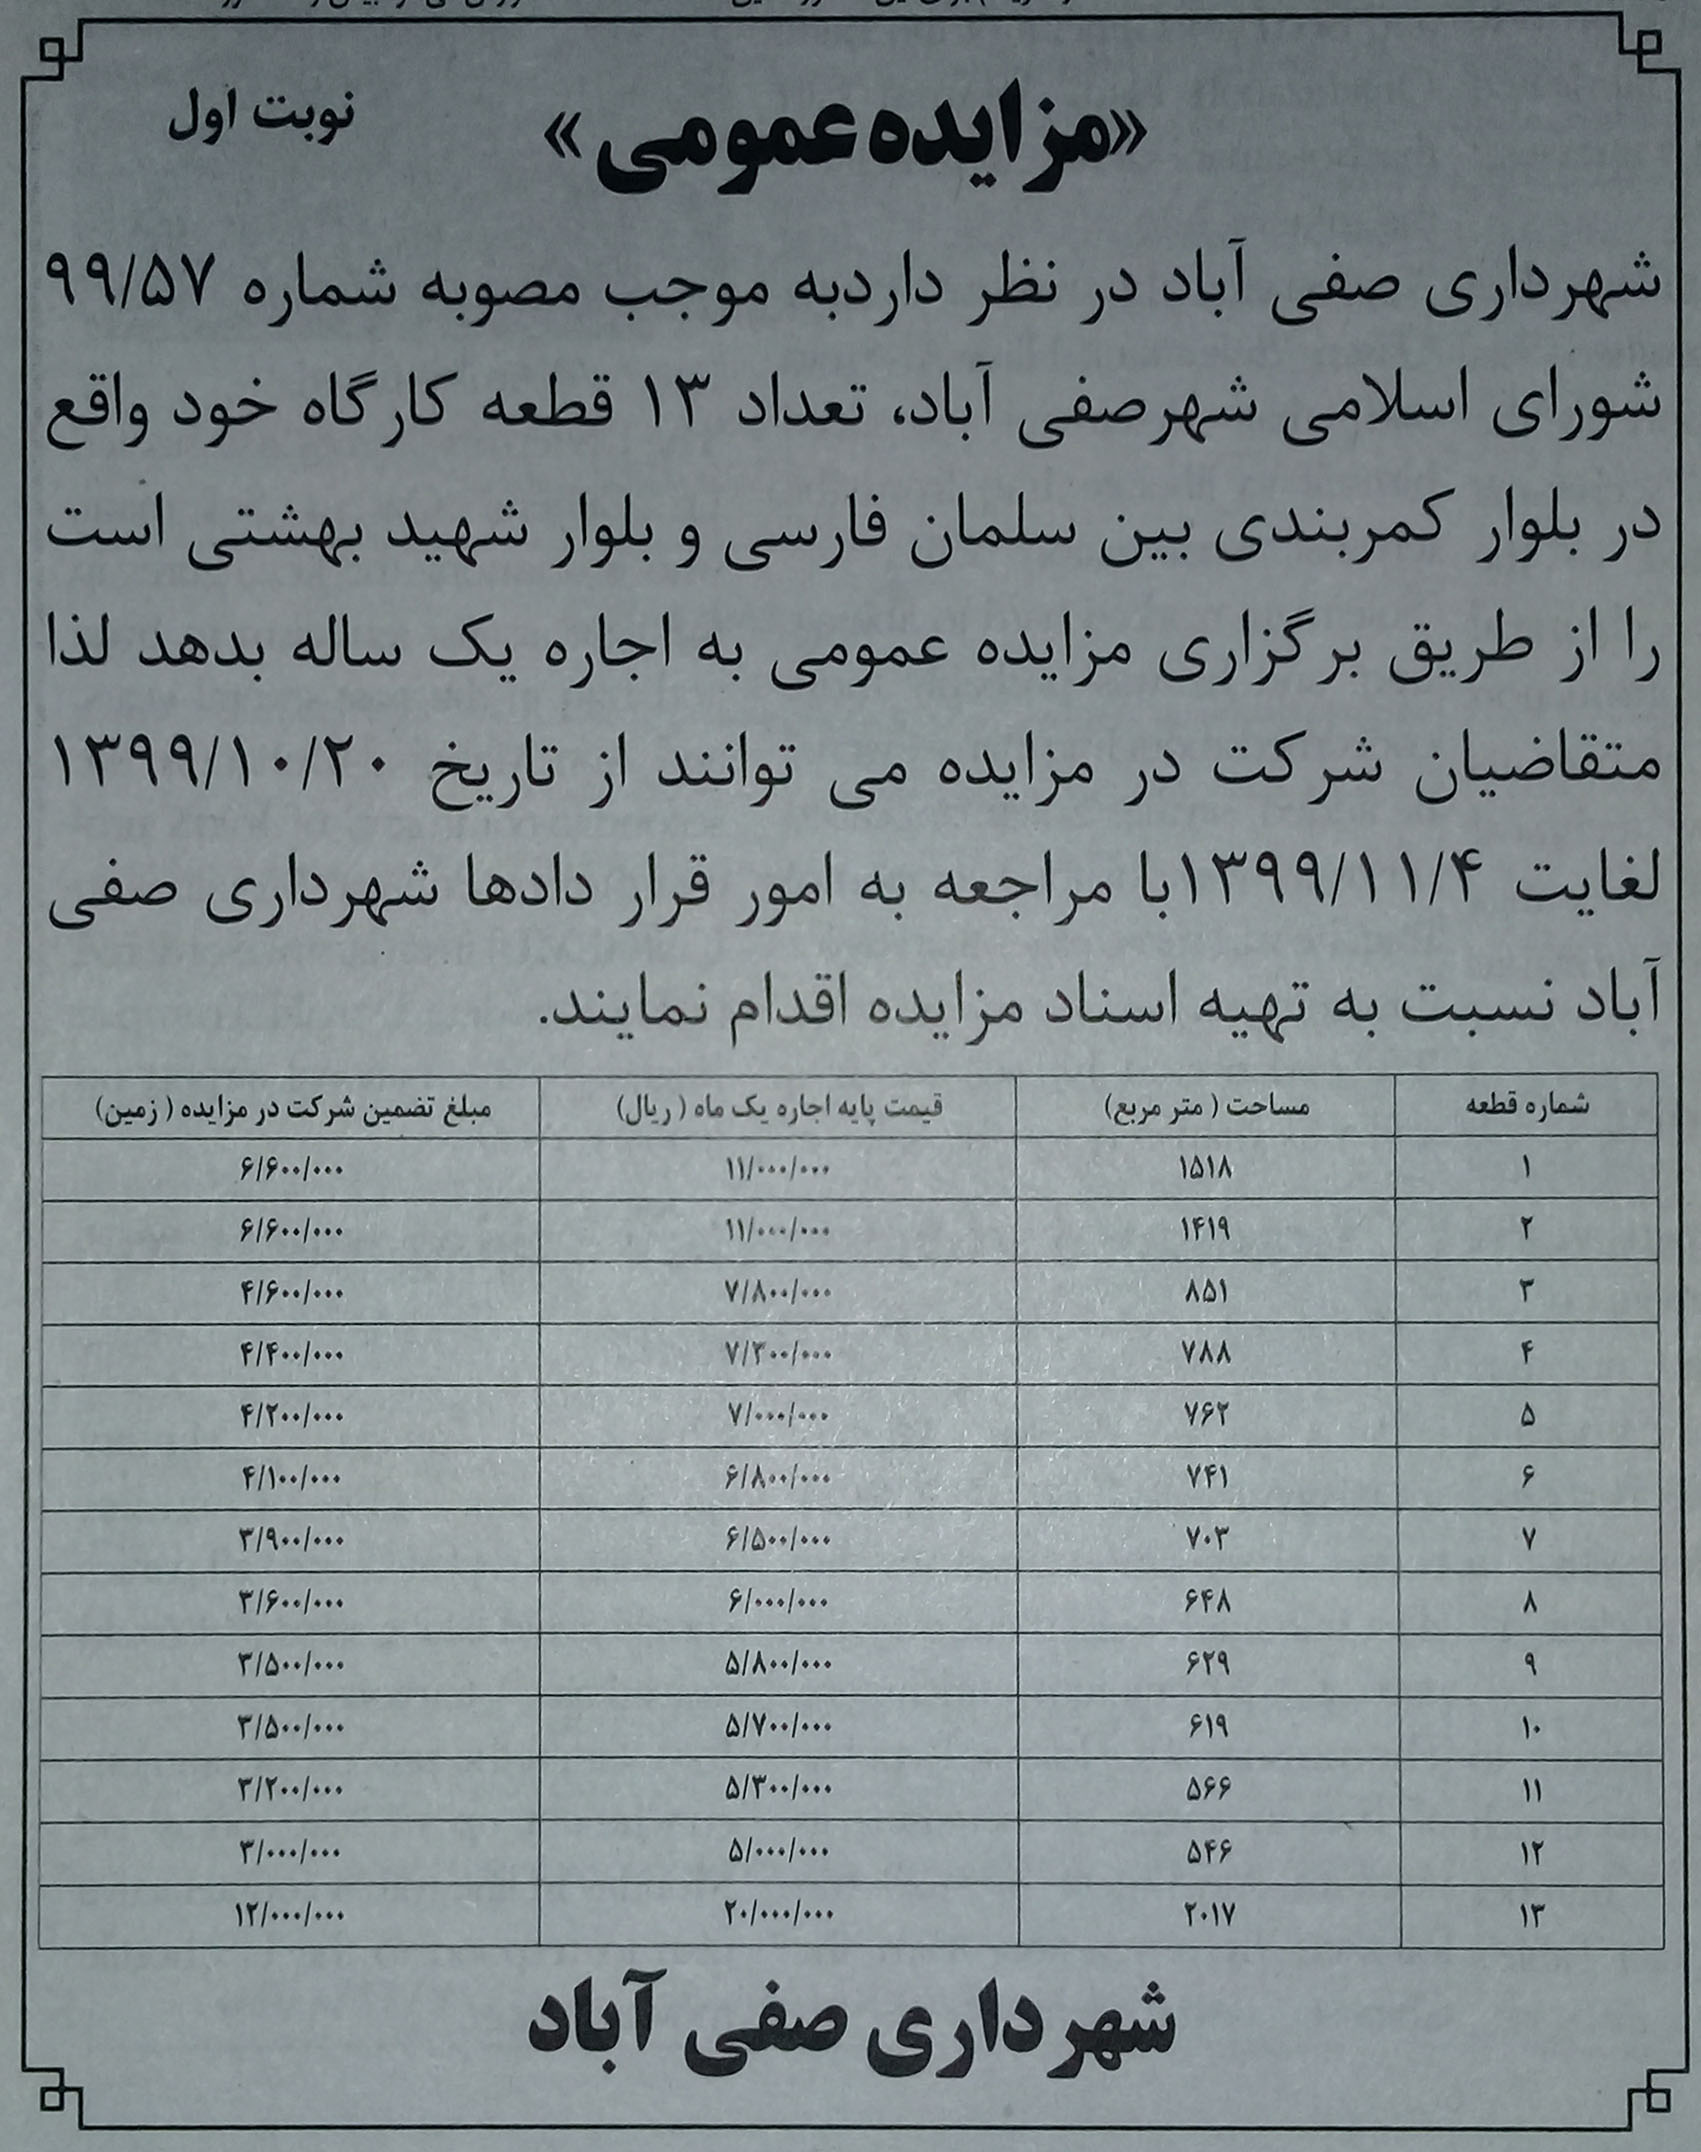 «مزایده عمومی»
نوبت اول
شهرداری صفی آباد در نظر داردبه موجب مصوبه شماره ۹۹/۵۷
شورای اسلامی شهرصفی آباد، تعداد ۱۳ قطعه کارگاه خود واقع
در بلوار کمربندی بین سلمان فارسی و بلوار شهید بهشتی است
را از طریق برگزاری مزایده عمومی به اجاره یک ساله بدهد لذا
متقاضیان شرکت در مزایده می توانند از تاریخ ۱۳۹۹/۱۰/۲۰
لغایت ۱۳۹۹/۱۱/۴با مراجعه به امور قرار دادها شهرداری صفی
آباد نسبت به تهیه اسناد مزایده اقدام نمایند.
شماره قطعه مساحت ( متر مربع) قیمت پایه اجاره یک ماه ( ریال) مبلغ تضمین شرکت در مزایده ( زمین)
۱ ۱۵۱۸ ۱۱/۰۰۰/۰۰۰ ۶/۶۰۰/۰۰۰
۲ ۱۴۱۹ ۱۱/۰۰۰/۰۰۰ ۶/۶۰۰/۰۰۰
۳ ۸۵۱ ۷/۸۰۰/۰۰۰ ۴/۶۰۰/۰۰۰
۴ ۷۸۸ ۷/۳۰۰/۰۰۰ ۴/۴۰۰/۰۰۰
۵ ۷۶۲ ۷/۰۰۰/۰۰۰ ۴/۲۰۰/۰۰۰
۶ ۷۴۱ ۶/۸۰۰/۰۰۰ ۴/۱۰۰/۰۰۰
۷ ۷۰۳ ۶/۵۰۰/۰۰۰ ۳/۹۰۰/۰۰۰
۸ ۶۴۸ ۶/۰۰۰/۰۰۰ ۳/۶۰۰/۰۰۰
۹ ۶۲۹ ۵/۸۰۰/۰۰۰ ۳/۵۰۰/۰۰۰
۱۰ ۶۱۹ ۵/۷۰۰/۰۰۰ ۳/۵۰۰/۰۰۰
۱۱ ۵۶۶ ۵/۳۰۰/۰۰۰ ۳/۲۰۰/۰۰۰
۱۲ ۵۴۶ ۵/۰۰۰/۰۰۰ ۳/۰۰۰/۰۰۰
۱۳ ۲۰۱۷ ۲۰/۰۰۰/۰۰۰ ۱۲/۰۰۰/۰۰۰
شهرداری صفی آباد